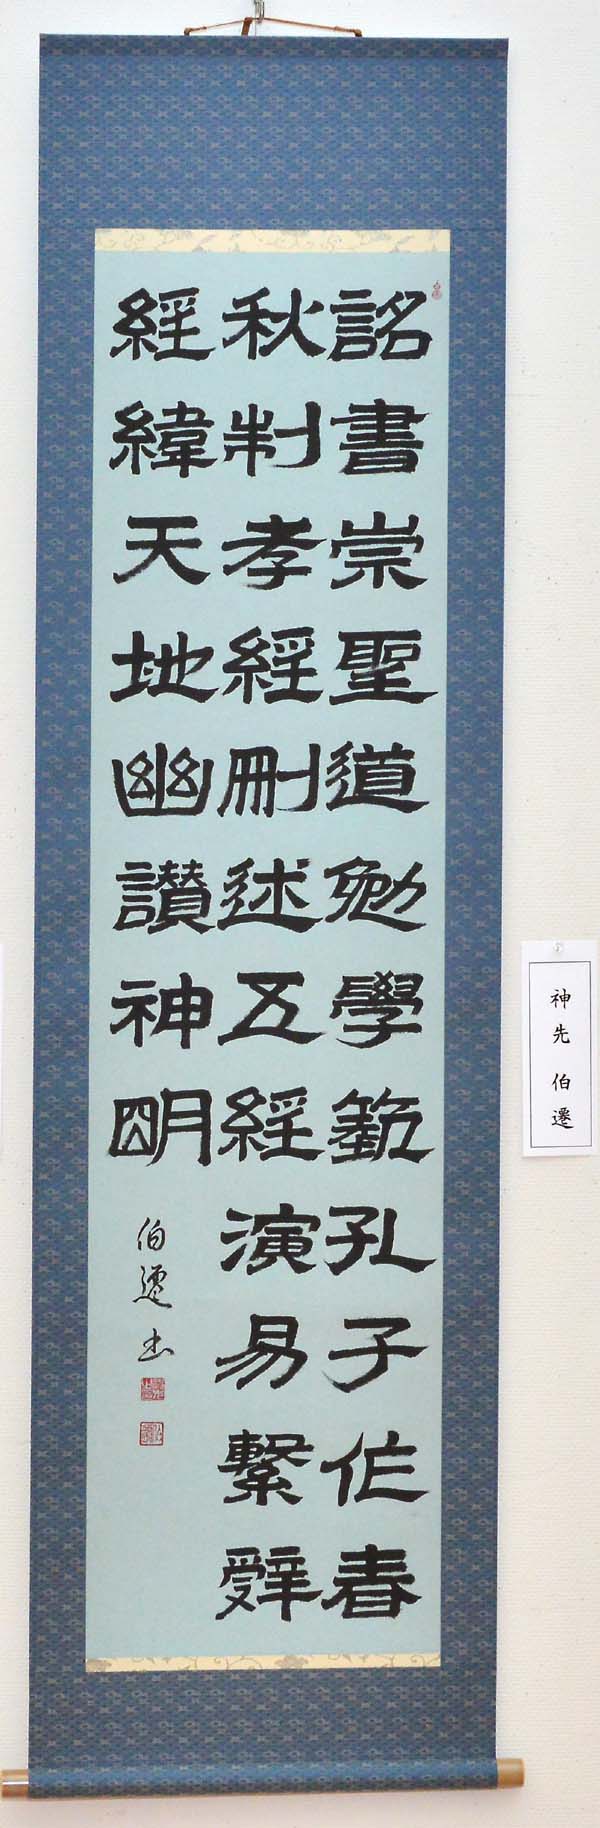 詔書崇聖道勉學藝孔子作春
秋制孝經刪述五經演易繫辭
經緯天地幽讚神明
伯遷書
神先 伯遷